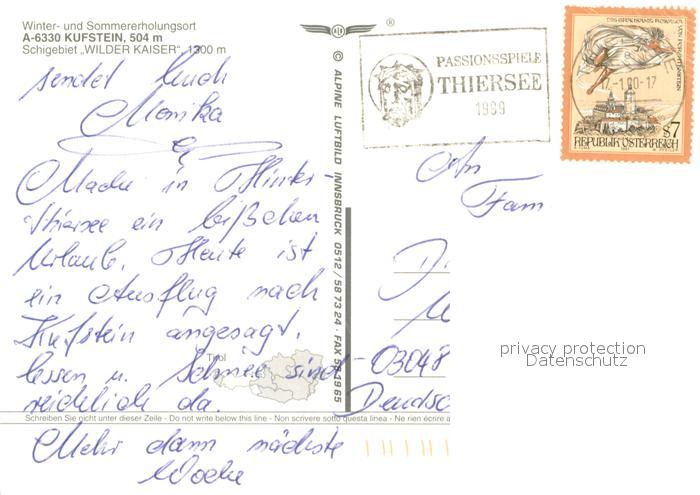 Winter- und Sommererholungsort
A-6330 KUFSTEIN, 504 m
Schigebiet „WILDER KAISER“, 1300 m
sendet Euch
Monika
Mache in Hinter-
thiersee ein bißchen
Urlaub. Heute ist
ein Ausflug nach
Kufstein angesagt.
Essen u. Schnee sind
reichlich da.
Tirol
Schreiben Sie nicht unter dieser Zeile - Do not write below this line - Non scrivere sotto questa linea - Ne rien écrire a
Mehr dann nächste
Woche
®
© ALPINE LUFTBILD INNSBRUCK 0512 / 58 73 24 · FAX 58 19 65
PASSIONSSPIELE
THIERSEE
1999
17-1
00-17
s7
REPUBLIK ÖSTERREICH
An
Fam
03048
Deutsc
privacy protection
Datenschutz